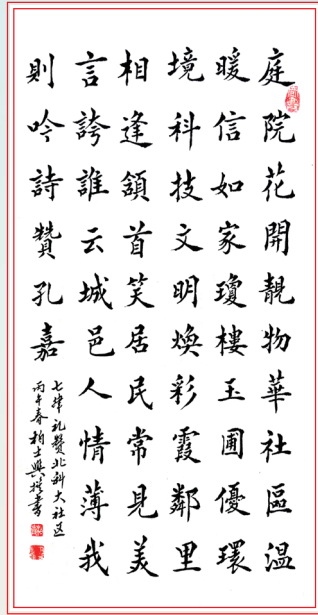 庭院花開靚物華社區温
暖信如家瓊樓玉圃優環
境科技文明煥彩霞鄰里
相逢頷首笑居民常見美
言誇誰云城邑人情薄我
則吟詩贊孔嘉
七律礼赞北科大社区
丙午春柏士興撰書